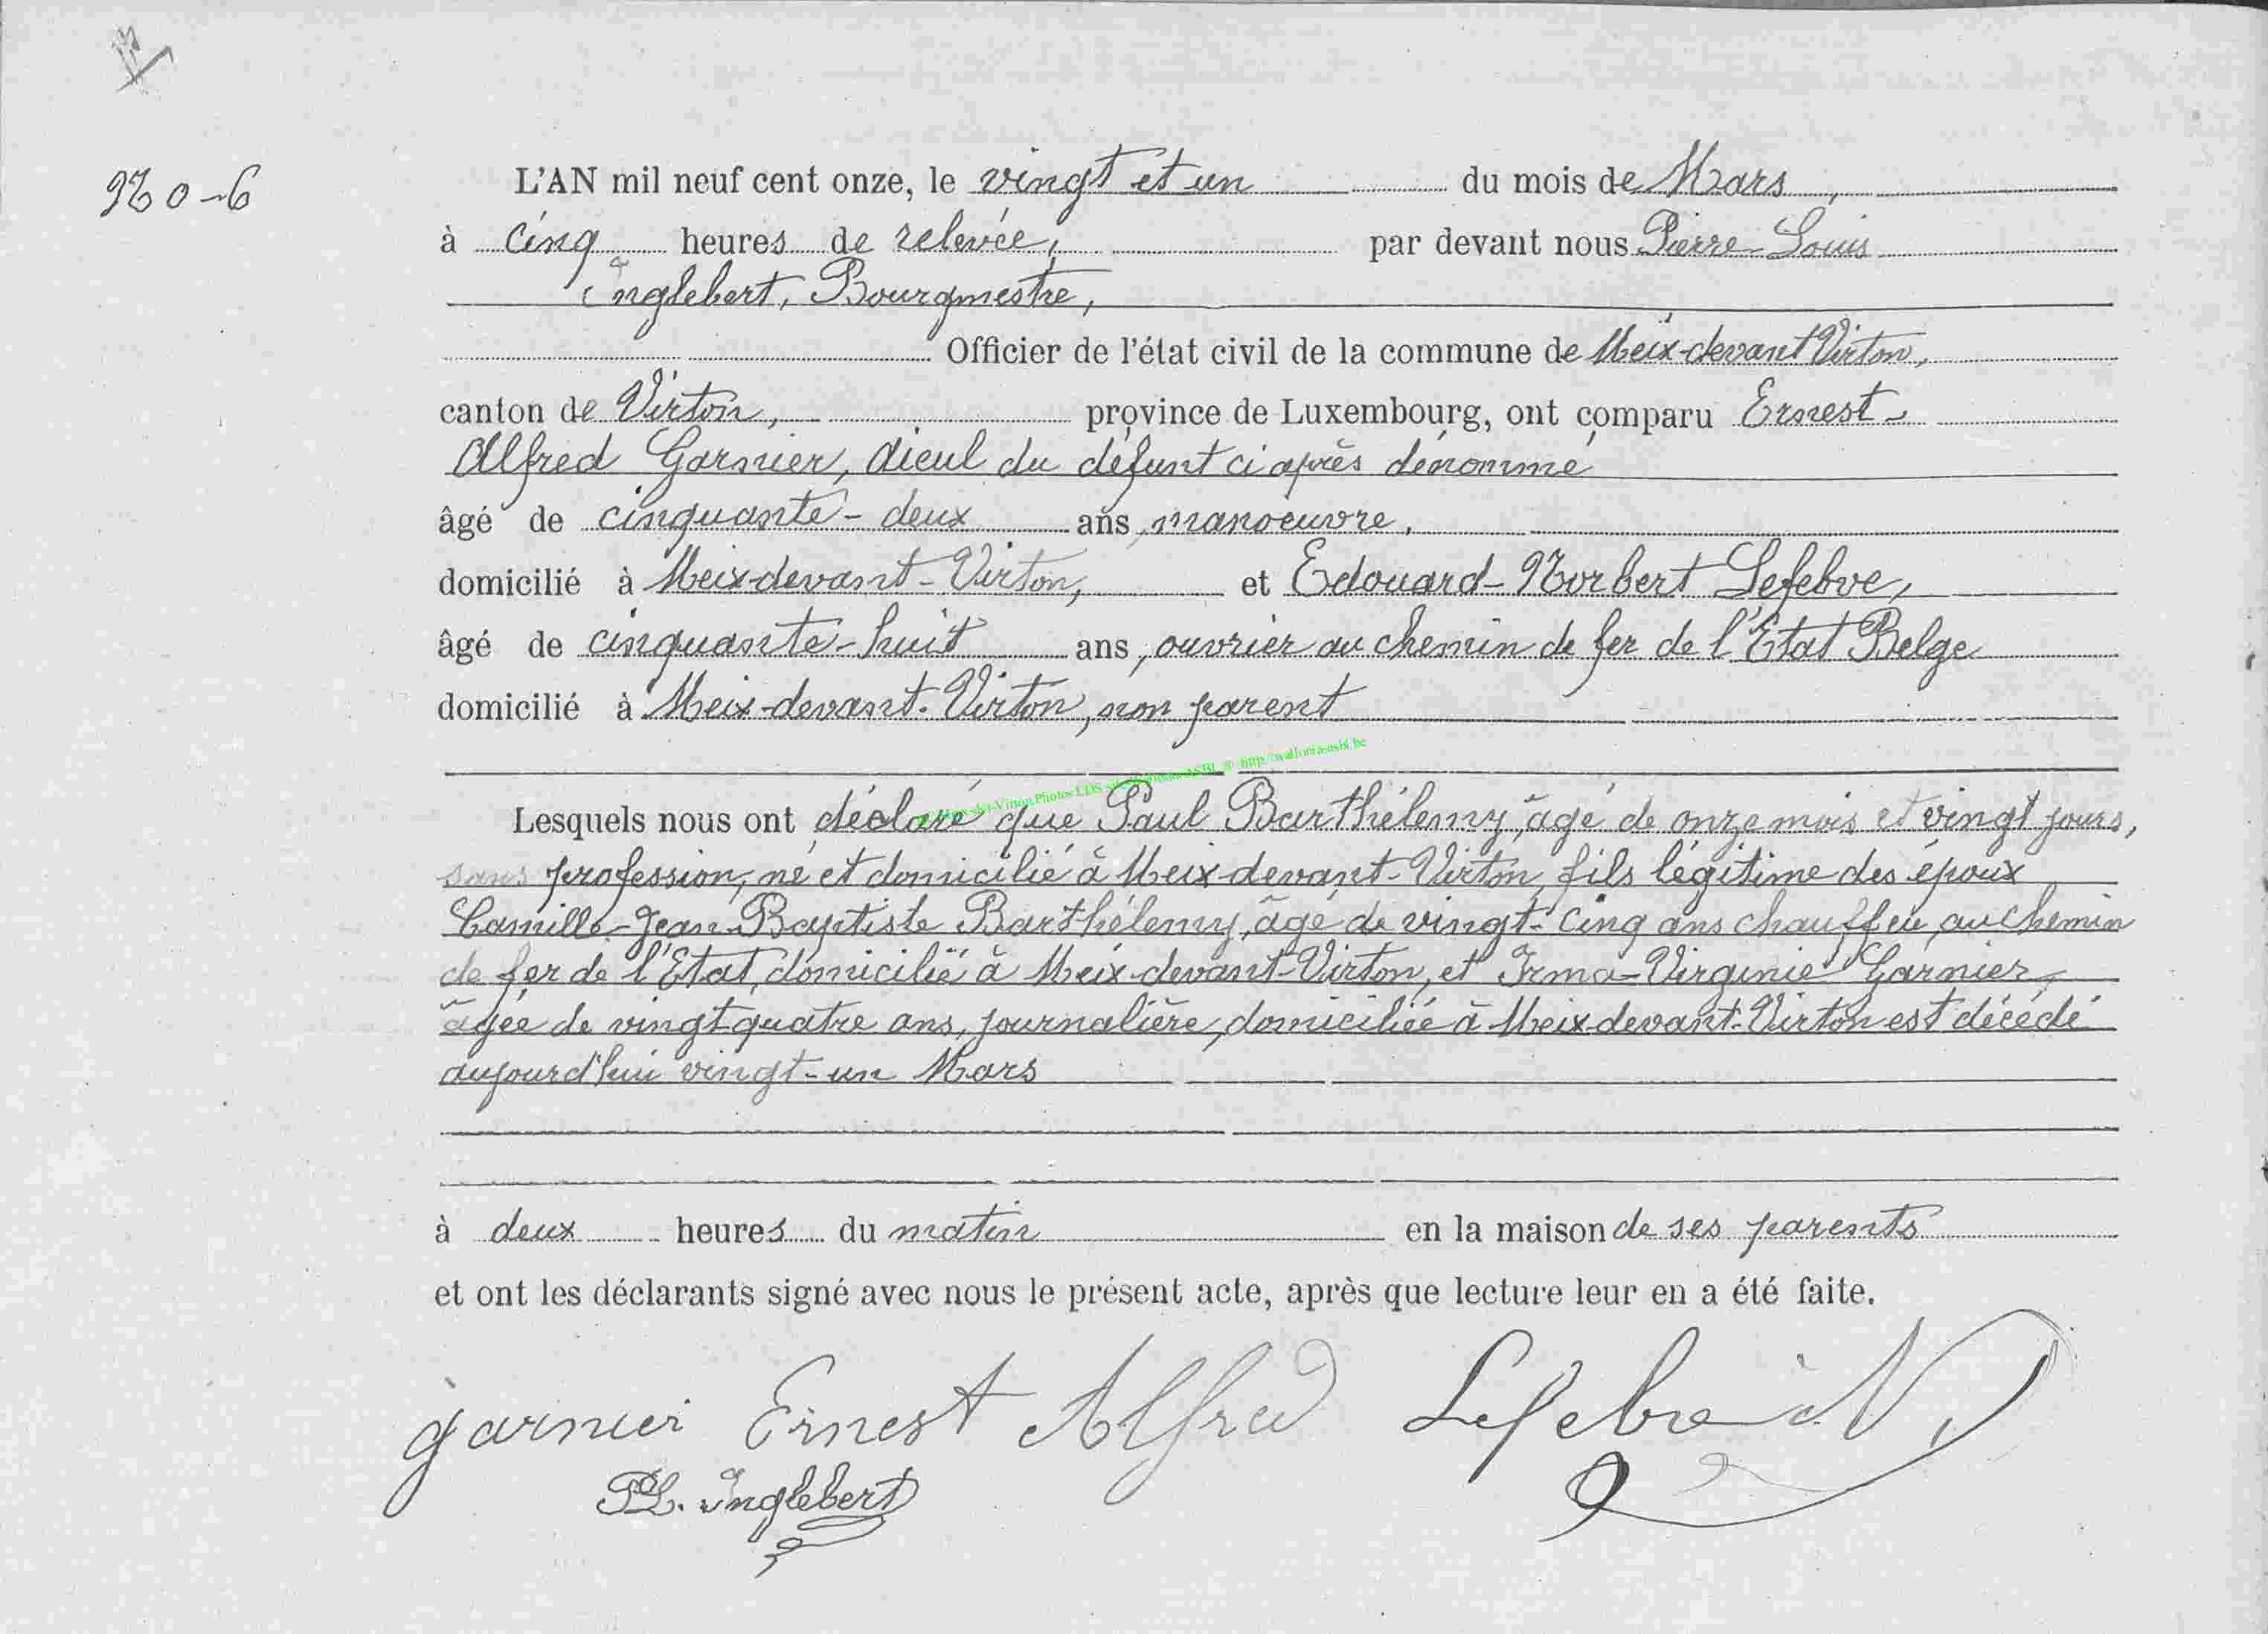 No 6
L'AN mil neuf cent onze, le vingt et un du mois de Mars,
à cinq heures de relevée, par devant nous Pierre-Louis
Inglebert, Bourgmestre,
Officier de l'état civil de la commune de Meix-devant-Virton,
canton de Virton, province de Luxembourg, ont comparu Ernest-
Alfred Garnier, aïeul du défunt ci après dénommé
âgé de cinquante-deux ans, manoeuvre,
domicilié à Meix-devant-Virton, et Edouard-Norbert Lefebve,
âgé de cinquante-huit ans, ouvrier au chemin de fer de l'Etat Belge
domicilié à Meix-devant-Virton, non parent
Lesquels nous ont déclaré que Paul Barthélemy, âgé de onze mois et vingt jours,
sans profession, né et domicilié à Meix-devant-Virton, fils légitime des époux
Camille-Jean-Baptiste Barthélemy, âgé de vingt-cinq ans chauffeu au chemin
de fer de l'Etat, domicilié à Meix-devant-Virton, et Irma-Virginie Garnier,
âgée de vingt quatre ans, journalière, domiciliée à Meix-devant-Virton est décédé
aujourd'hui vingt-un Mars
à deux heures du matin en la maison de ses parents
et ont les déclarants signé avec nous le présent acte, après que lecture leur en a été faite.
garnier Ernest Alfred Lefebve N
PL. Inglebert